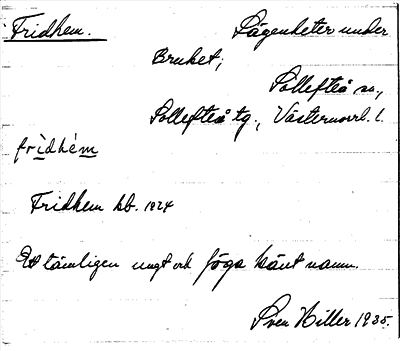 Fridhem. Lägenheter under
Bruket,
Sollefteå sn.,
Sollefteå tg., Västernorrl. l.
fri̱dhém
Fridhem hb. 1924
Ett tämligen ungt och föga känt namn.
Sven Hiller 1935.